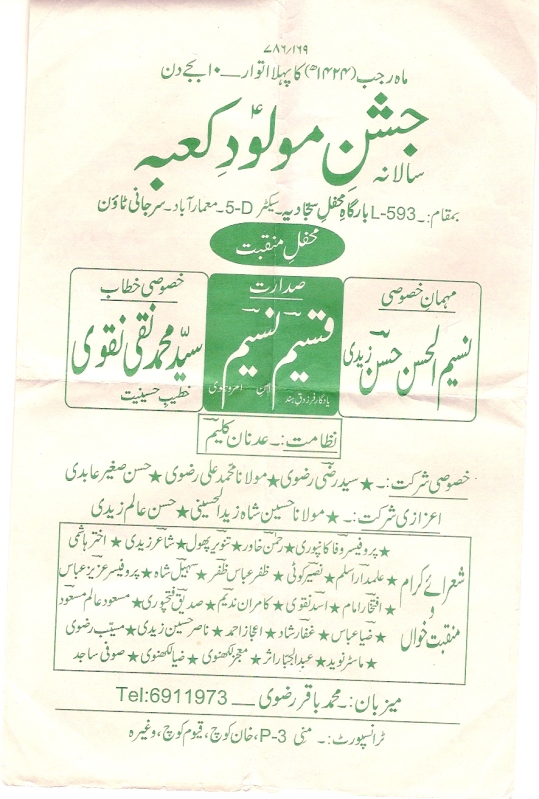 ۷۸۶/۱۶۹
ماہ رجب (۱۴۲۴ھ) کا پہلا اتوار ــ ۱۰ بجے دن
جشنِ مولودِ کعبہ
سالانہ
بمقام:۔ L-593 بارگاہِ محفلِ سجّادیہ۔ سیکٹر 5-D۔ معمار آباد۔ سرجانی ٹاؤن
محفلِ منقبت
مہمانِ خصوصی
نسیم الحسن حسن زیدی
صدارت
قسیم ابن نسیم امروہوی
یادگار فرزدق ہند
خصوصی خطاب
سیّد محمد نقی نقوی
خطیبِ حسینیت
نظامت:۔ عدنان کلیم
خصوصی شرکت:۔ ★ سید رضی رضوی ★ مولانا محمد علی رضوی ★ حسن صغیر عابدی
اعزازی شرکت:۔ ★ مولانا حسین شاہ زید الحسینی ★ حسن عالم زیدی
شعرائے کرام
و
منقبت خواں
★ پروفیسر وفا کانپوری ★ رحمٰن خاور ★ تنویر پھول ★ شاعر زیدی ★ اختر ہاشمی
★ علمدار اسلم ★ نصیر کوٹی ★ ظفر عباس ظفر ★ سہیل شاہ ★ پروفیسر عزیز عباس
★ افتخار امام ★ اسد نقوی ★ کامران ندیم ★ صدیق فتحپوری ★ مسعود عالم مسعود
★ ضیا عباس ★ غفار شاد ★ اعجاز احمد ★ ناصر حسین زیدی ★ مسیّب رضوی
★ ماسٹر نوید ★ عبدالجبار اثر ★ معجز لکھنوی ★ ضیا لکھنوی ★ صوفی ساجد
میزبان:۔ محمد باقر رضوی ــ Tel:6911973
ٹرانسپورٹ:۔ منی P-3، خان کوچ، قیوم کوچ، وغیرہ